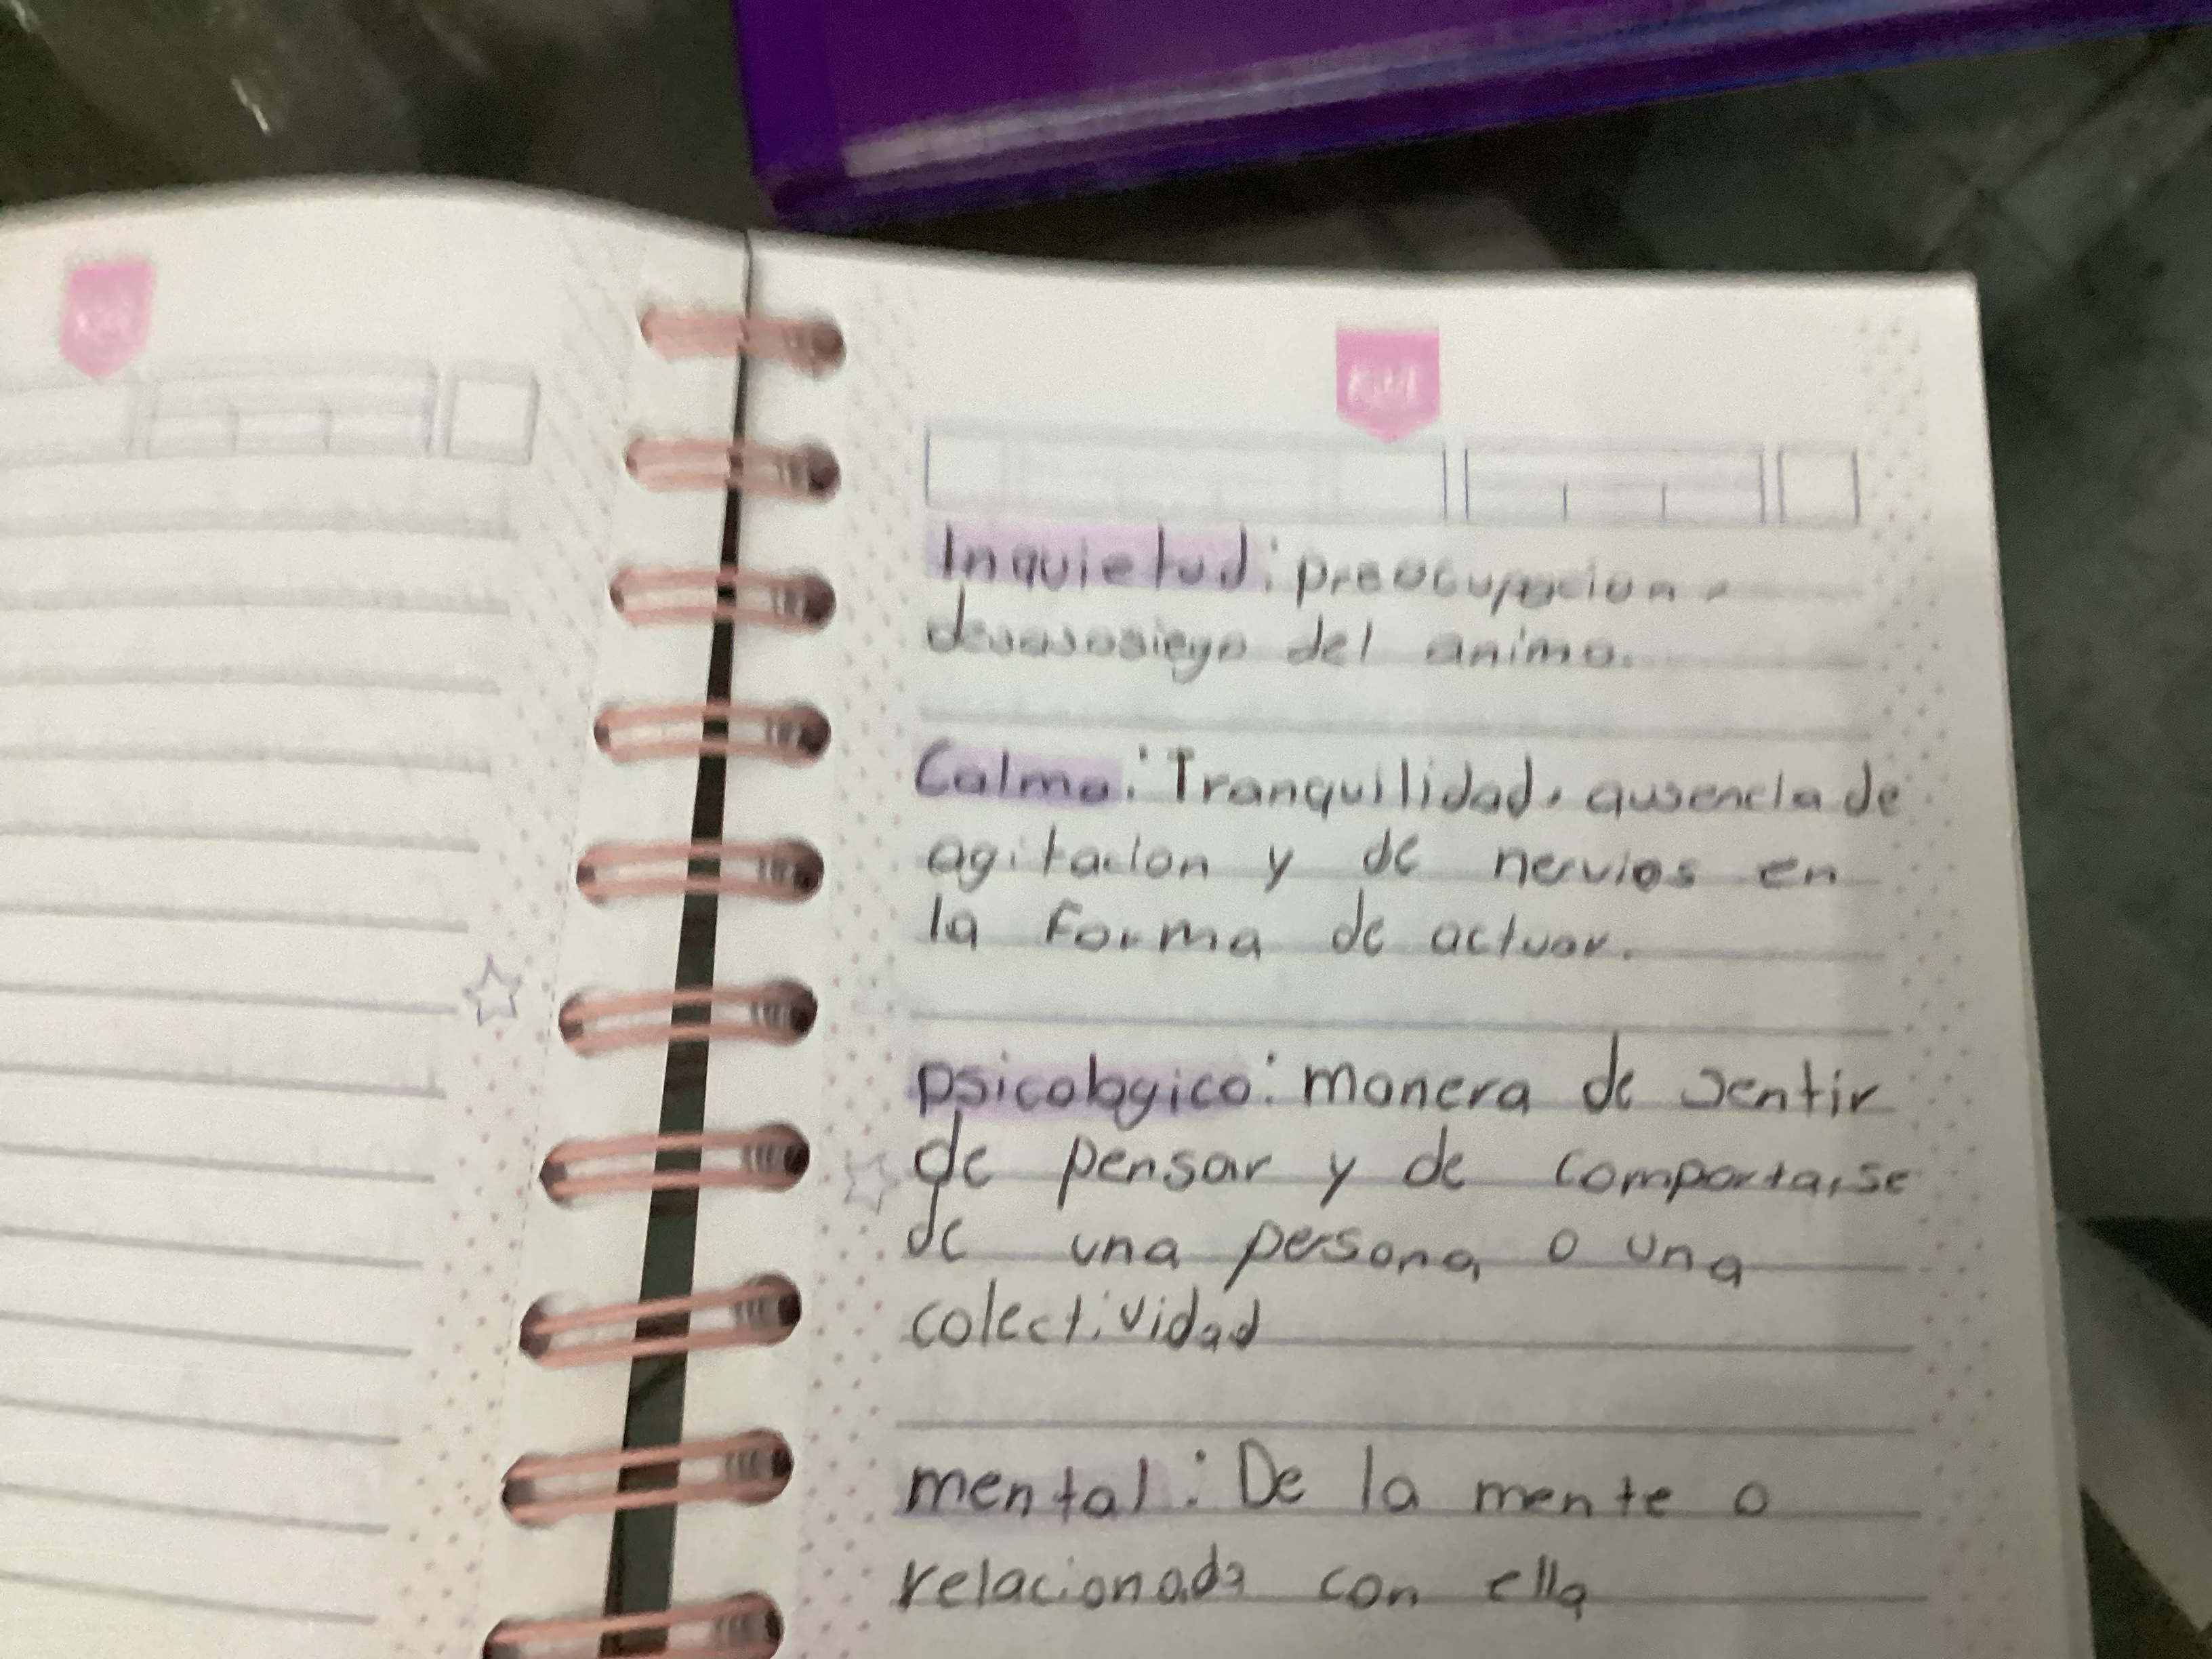 Inquietud: preocupacion,
desasosiego del animo.
Calma: Tranquilidad, ausencia de
agitacion y de nervios en
la forma de actuar.
psicologico: manera de sentir
de pensar y de comportarse
de una persona o una
colectividad
mental: De la mente o
relacionada con ella